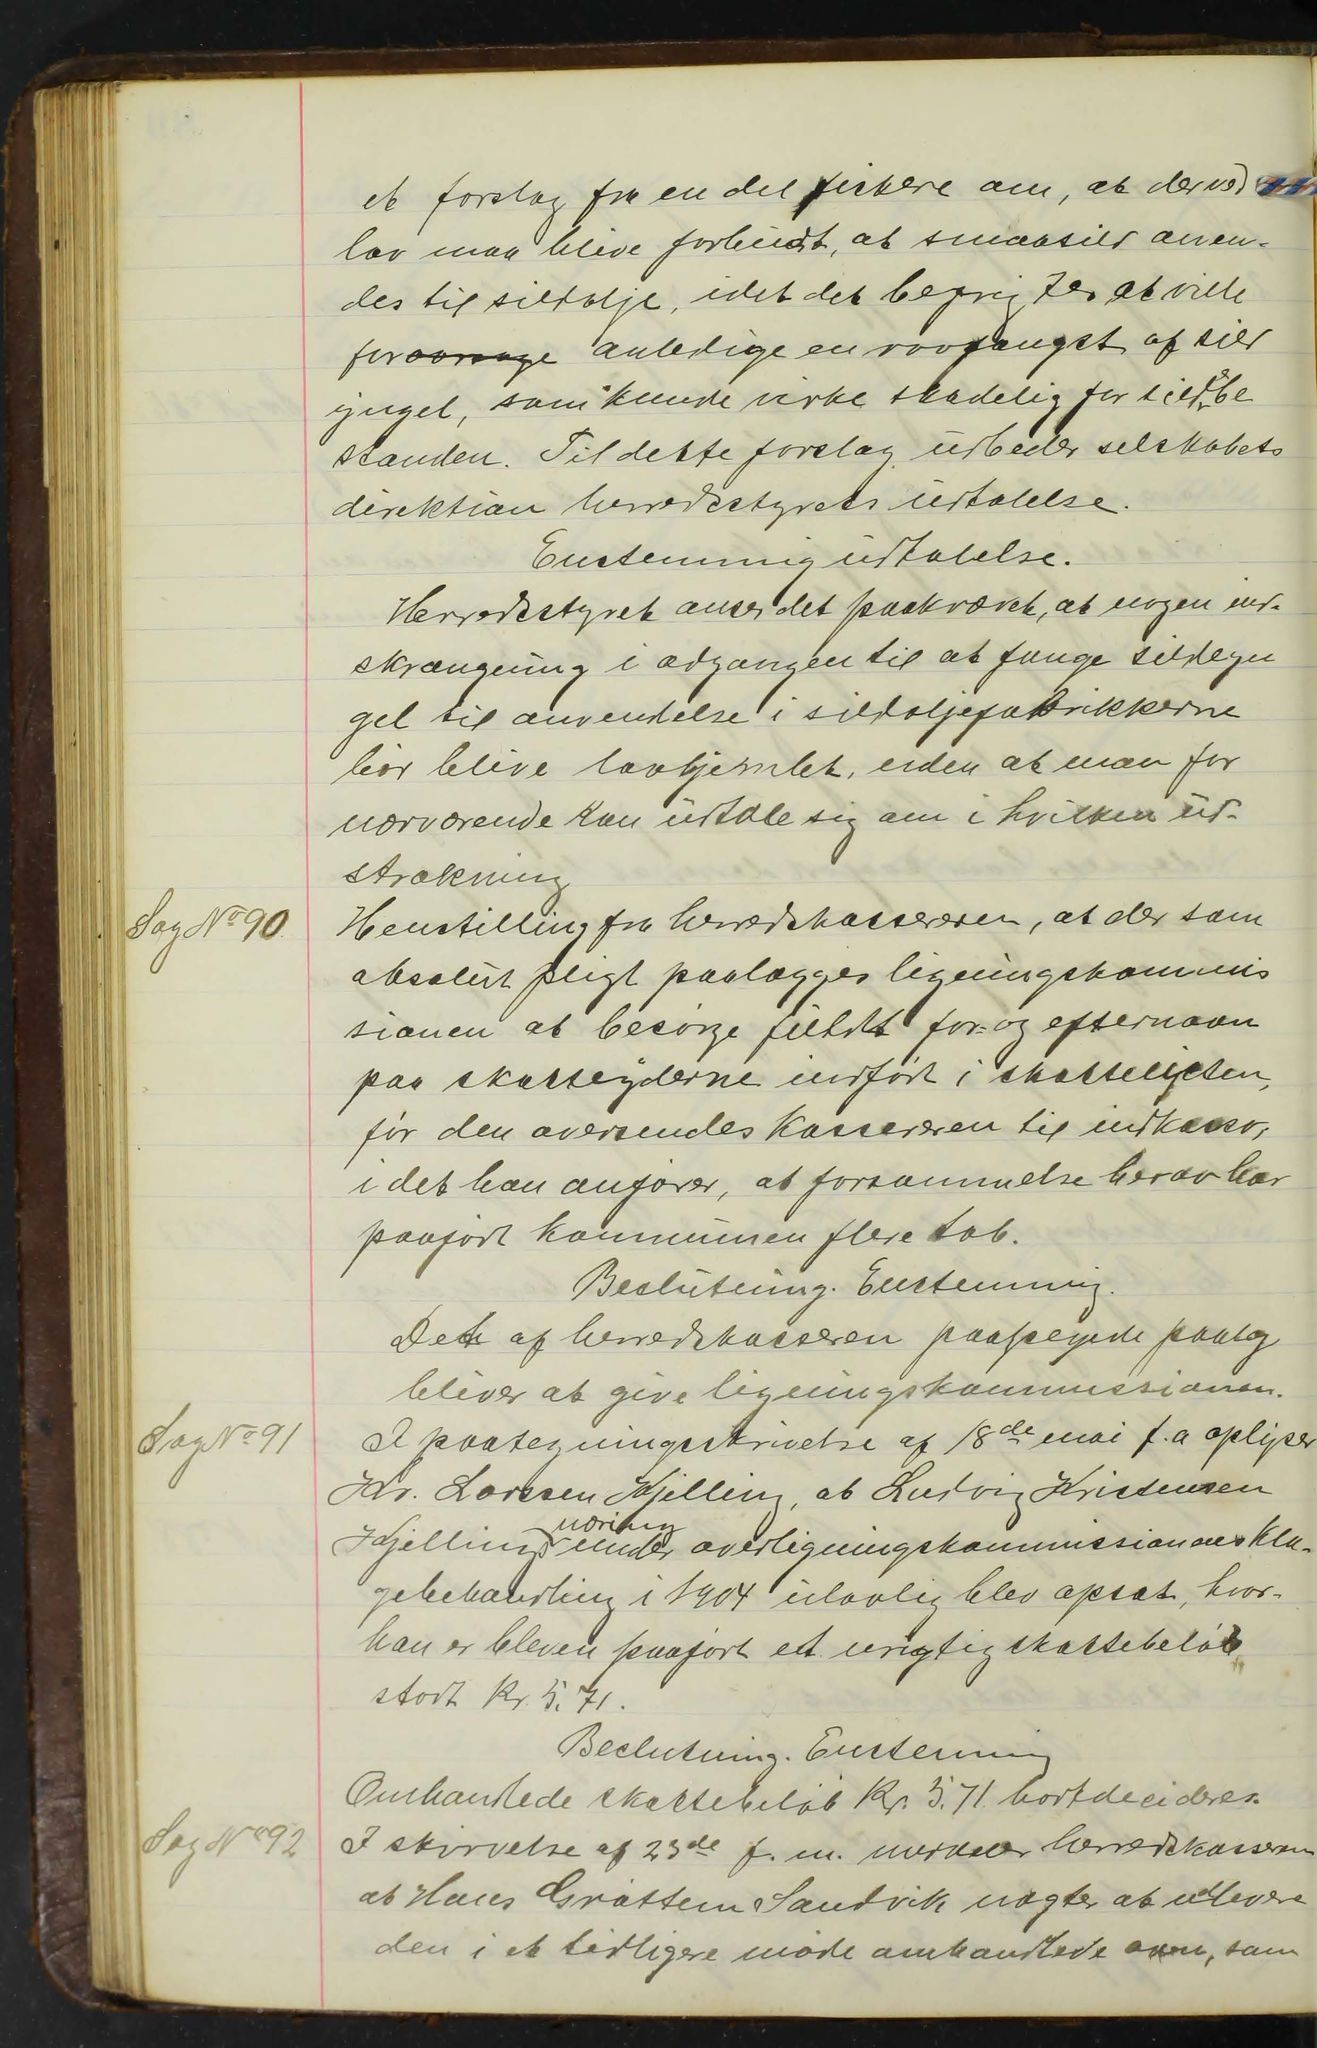 et forslag fra en del fiskere om, at der ved
lov maa blive forbudt, at smaasild anven-
des til sildolje, idet det befrygtes at ville
foraarsage anledige en rovfangst af sild
yngel, som kunde virke skadelig for sildbe
standen. Til dette forslag udbeder selskabets
direktion herredsstyrets udtalelse.
Enstemmig udtalelse.
Herredsstyret anser det paakrævet, at nogen ind-
skrænkning i adgangen til at fange sildeyn
gel til anvendelse i sildoljefabrikkerne
bør blive lovhjemlet, uden at man for
nærværende kan udtale sig om i hvilken ud-
strækning
Sag No 90. Henstilling fra herredskassereren, at der som
absolut pligt paalægges ligningskommis
sionen at besørge fuldt for- og efternavn
paa skatteyderne indført i skattelisten,
før den oversendes kassereren til indkasso,
i det han anfører, at forsømmelse herav har
paaført kommunen flere tab.
Beslutning. Enstemmig.
Det af herredskasseren paapegede paalæg
bliver at give ligningskommissionen.
Sag No 91 I paategningsskrivelse af 18de mai f.a oplyser
Kr. Larssen Kjelling, at Ludvig Kristensen
Kjellings næring under overligningskommissionens kla-
gebehandling i 1904 ulovlig blev opsat, hvor-
han er bleven paaført et urigtig skattebeløb
stort Kr. 5.71.
Beslutning. Enstemmig
Omhandlede skattebeløb Kr. 5.71 bortdecideres.
Sag No 92 I skrivelse af 23de f. m. melder herredskasseren
at Hans Gråttem Sandvik nægter at udlevere
den i et tidligere møde omhandlede ovn, som